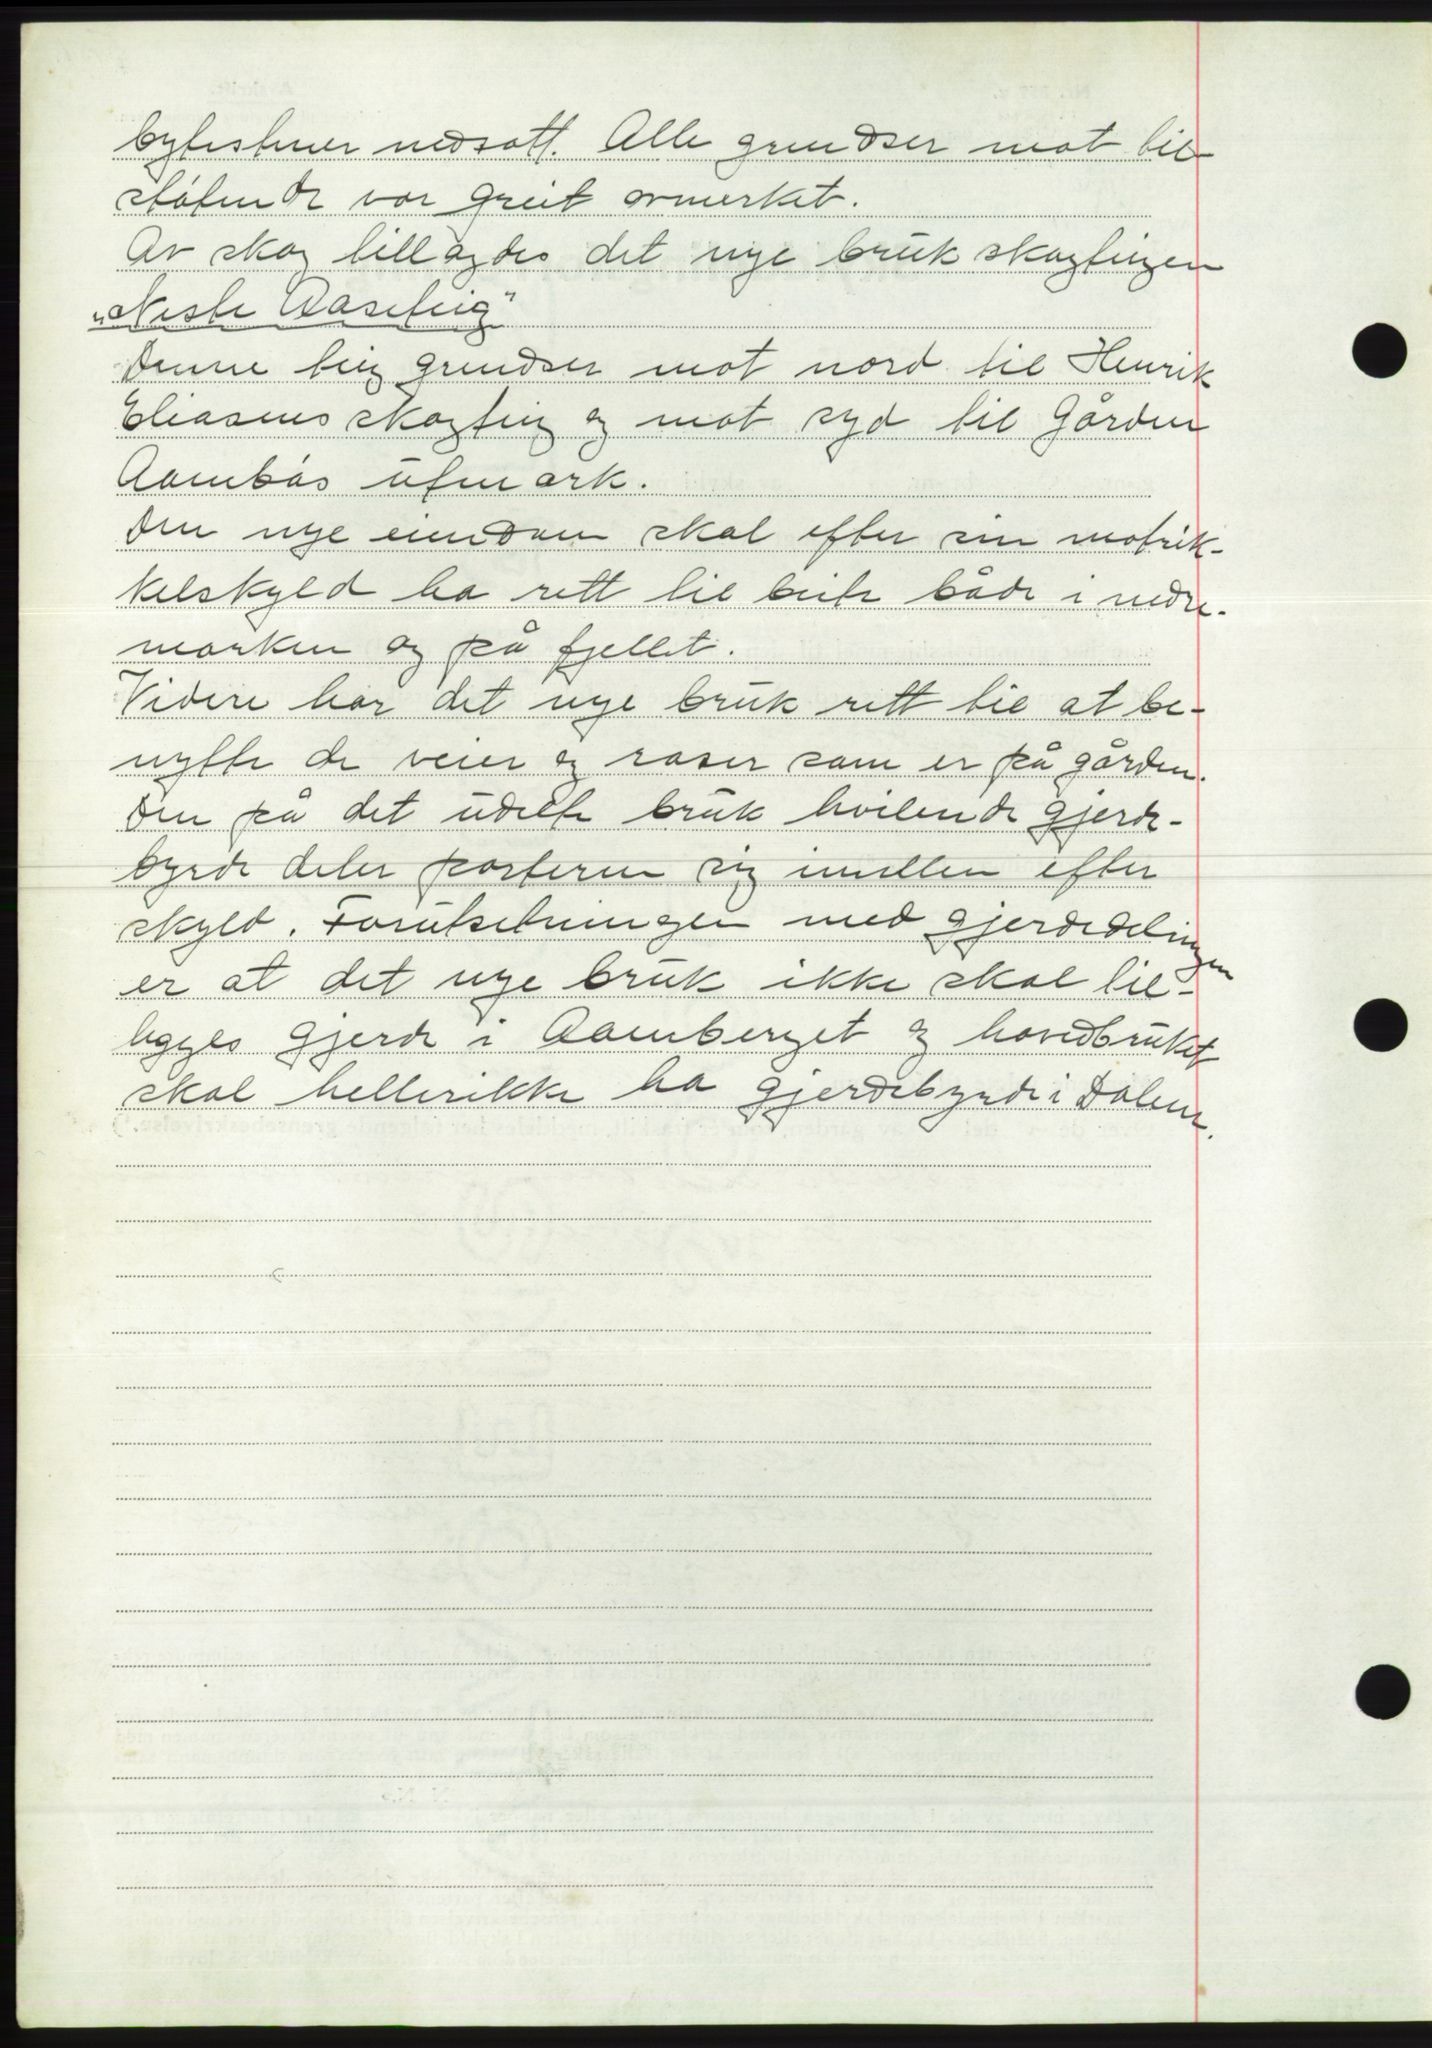 bytestener nedsatt. Alle grendser mot til-
støtende var greit avmerket.
Av skog tillagdes det nye bruk skogteigen
„Neste Aaseteig"
Denne teig grendser mot nord til Henrik
Eliasens skogteig og mot syd til Gården
Aambøs utmark.
Den nye eiendom skal efter sin matrik-
kelskyld ha rett til beite både i nedre-
marken og på fjellet.
Videre har det nye bruk rett til at be-
nytte de veier og raser som er på gården.
Den på det udelte bruk hvilende gjerde-
byrde deler parterne sig imellem efter
skyld. Forutsetningen med gjerdedelingen
er at det nye bruk ikke skal til-
legges gjerde i Aamberget og hovedbruket
skal hellerikke ha gjerdebyrde i Dalene.